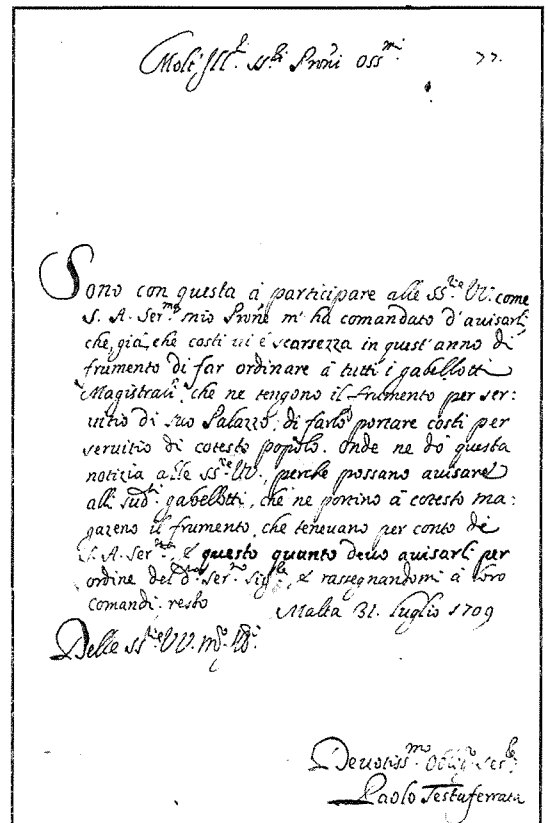 Molt' Ill.ri SS.ri Pr̃oni Oss.mi 77.
Sono con questa à participare alle SS.rie VV. come
S. A. Ser.ma mio Pr̃one m' ha comandato d' auisarli
che, già che costì ui è scarsezza in quest' anno di
frumento di far ordinare à tutti i gabellotti
Magistrali, che ne tengono il frumento per ser:
uitio di suo Palazzo, di farlo portare costì per
seruitio di cotesto popolo. Onde ne dò questa
notizia alle SS.rie VV., perche possano auisare
alli sud.ti gabellotti, che ne portino à cotesto ma:
gazeno il frumento, che teneuano per conto di
S. A. Ser.ma, è questo quanto deuo auisarli per
ordine del d.to Ser.mo Sig.re, & rassegnandomi à loro
comandi resto Malta 31. luglio 1709
Delle SS.rie VV. m.to
Deuotiss.mo Oblig.mo Ser.re
Paolo Testaferrata